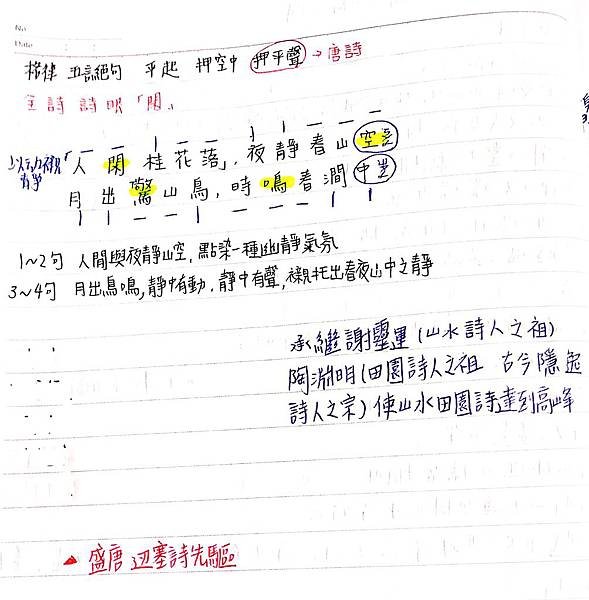 No
Date
格律 五言絕句 平起 押空中 押平聲→唐詩
全詩 詩眼「閑」
人閑桂花落，夜靜春山空
月出驚山鳥，時鳴春澗中
1~2句 人閒與夜靜山空，點染一種幽靜氣氛
3~4句 月出鳥鳴，靜中有動，靜中有聲，襯托出春夜山中之靜
承繼謝靈運(山水詩人之祖)
陶淵明(田園詩人之祖 古今隱逸
詩人之宗)使山水田園詩達到高峰
▲ 盛唐 边塞詩先驅